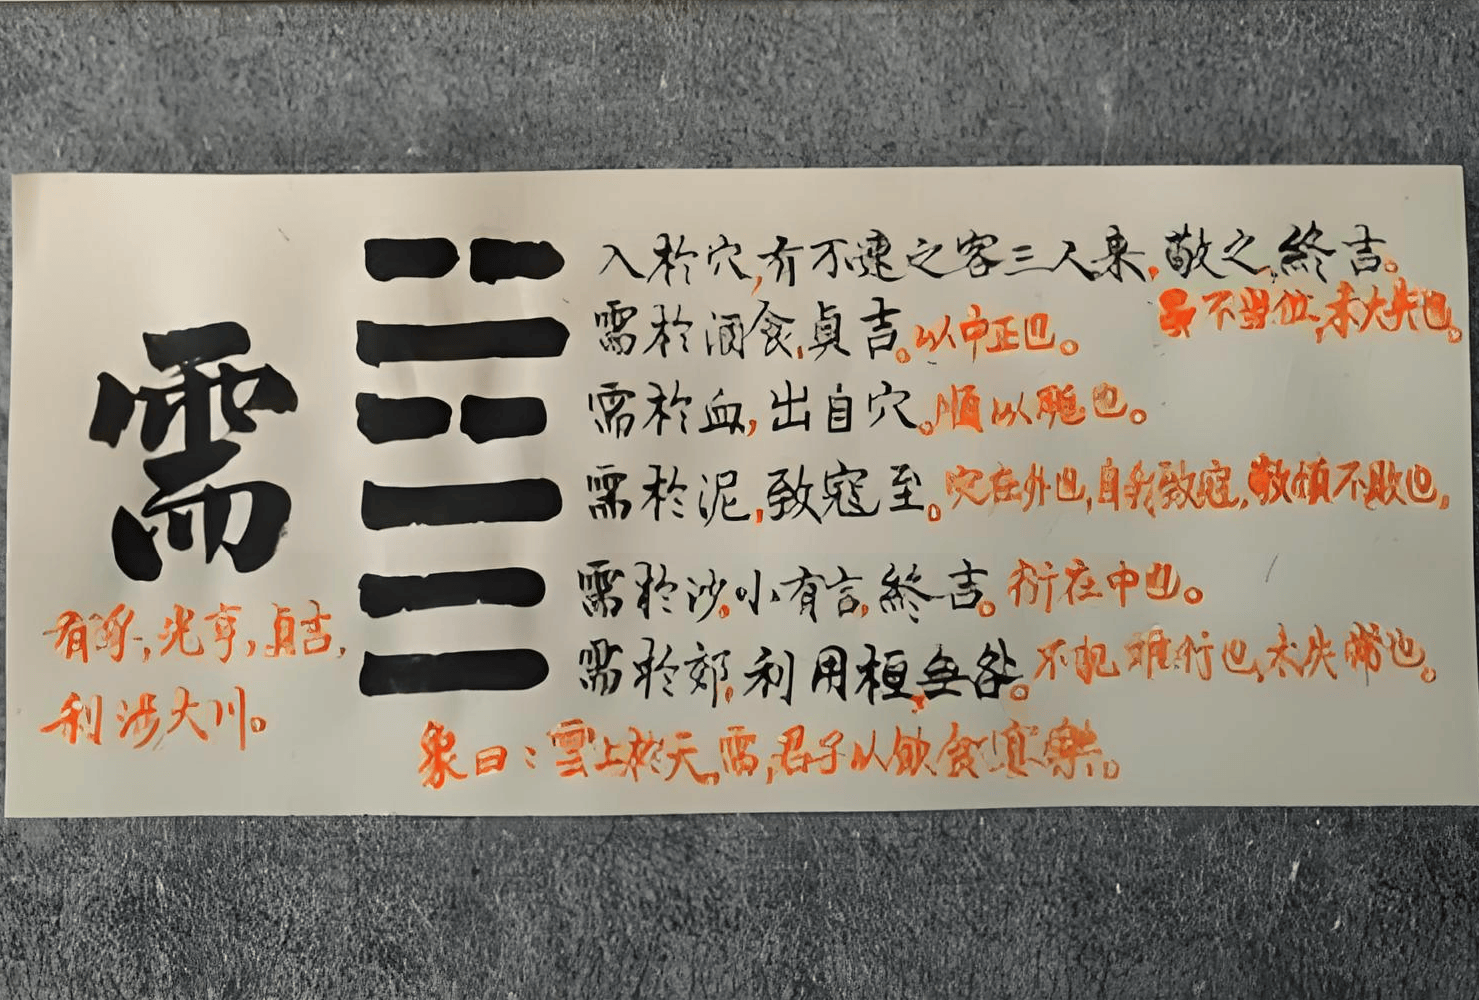 需
有孚,光亨,貞吉,
利涉大川。
入於穴,有不速之客三人来,敬之,終吉。
虽不當位,未大失也。
需於酒食,貞吉。以中正也。
需於血,出自穴。順以聽也。
需於泥,致寇至。灾在外也,自我致寇,敬慎不敗也,
需於沙,小有言,終吉。衍在中也。
需於郊,利用桓,無咎。不犯難行也,未失常也。
象曰:雲上於天,需,君子以飲食宴樂。